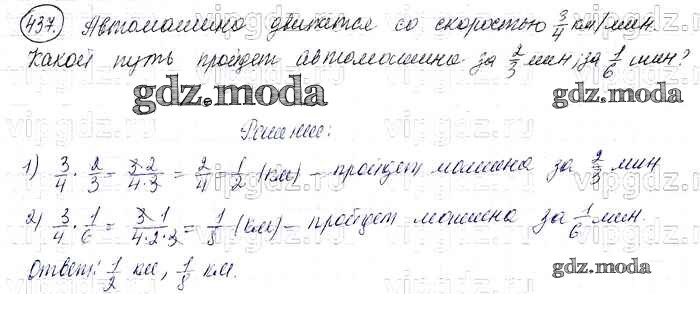 437. Автомашина движется со скоростью 3/4 км/мин.
Какой путь пройдет автомашина за 2/3 мин; за 1/6 мин?
gdz.moda
Решение:
1) 3/4 · 2/3 = 3·2/4·3 = 2/4 = 1/2 (км) – пройдет машина за 2/3 мин.
2) 3/4 · 1/6 = 3·1/4·2·3 = 1/8 (км) – пройдет машина за 1/6 мин.
Ответ: 1/2 км, 1/8 км.
gdz.moda
gdz.moda